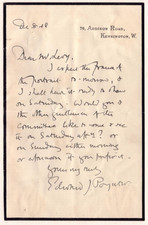 70, Addison Road,
Kensington, W.
Dec 8. 18
Dear Mr Levy,
I expect the frame of
the portrait to-morrow, &
I shall have it ready to show
on Saturday. Would you &
the other gentlemen of the
Committee like to come & see
it on Saturday aftn? or
on Sunday either morning
or afternoon if you prefer it.
Yours very truly
Edward J Poynter